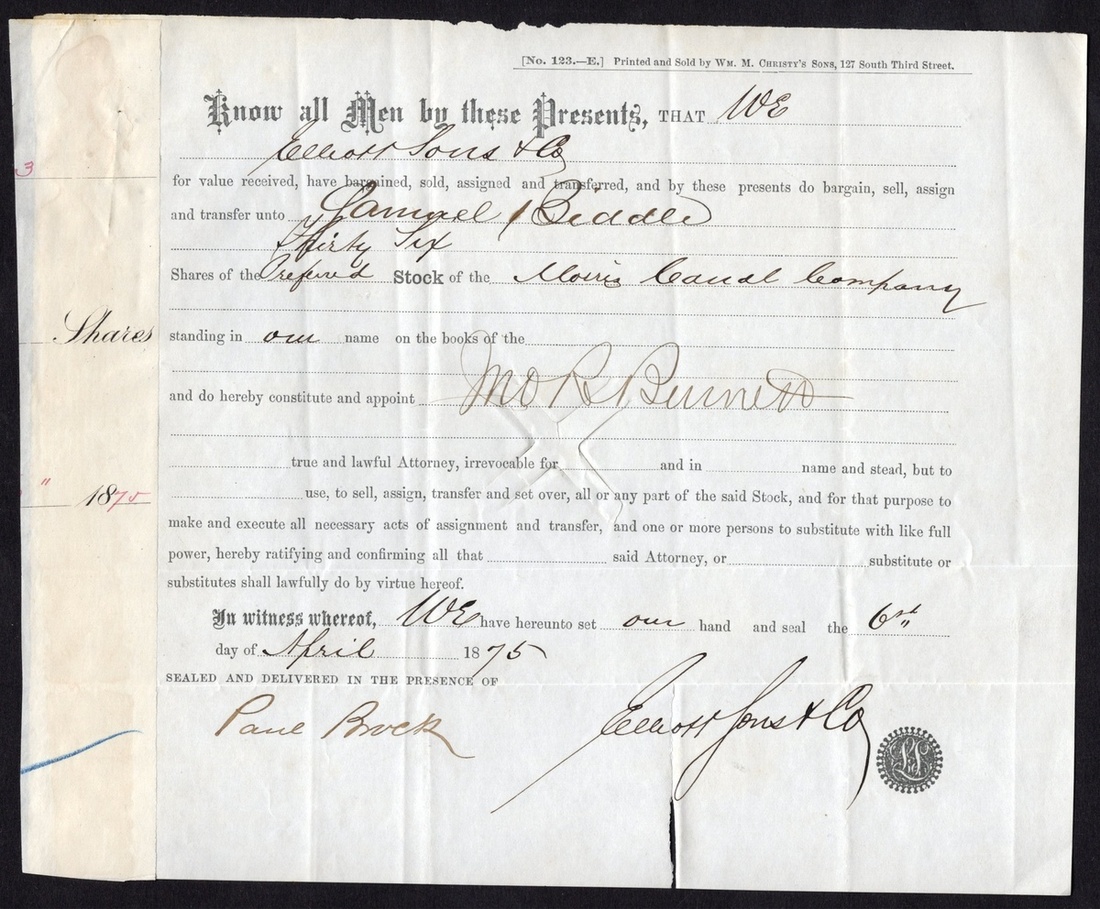 [No. 123.—E.] Printed and Sold by Wm. M. Christy's Sons, 127 South Third Street.
Know all Men by these Presents, THAT WE
Elliott Sons & Co
3
for value received, have bargained, sold, assigned and transferred, and by these presents do bargain, sell, assign
and transfer unto Samuel Biddle
Thirty Six
Shares of the Preferred Stock of the Morris Canal Company
Shares
standing in our name on the books of the
and do hereby constitute and appoint Jno R Burnett
true and lawful Attorney, irrevocable for and in name and stead, but to
" 1875
use, to sell, assign, transfer and set over, all or any part of the said Stock, and for that purpose to
make and execute all necessary acts of assignment and transfer, and one or more persons to substitute with like full
power, hereby ratifying and confirming all that said Attorney, or substitute or
substitutes shall lawfully do by virtue hereof.
In witness whereof, WE have hereunto set our hand and seal the 6th
day of April 1875
SEALED AND DELIVERED IN THE PRESENCE OF
Paul Brock
Elliott Sons & Co
LS